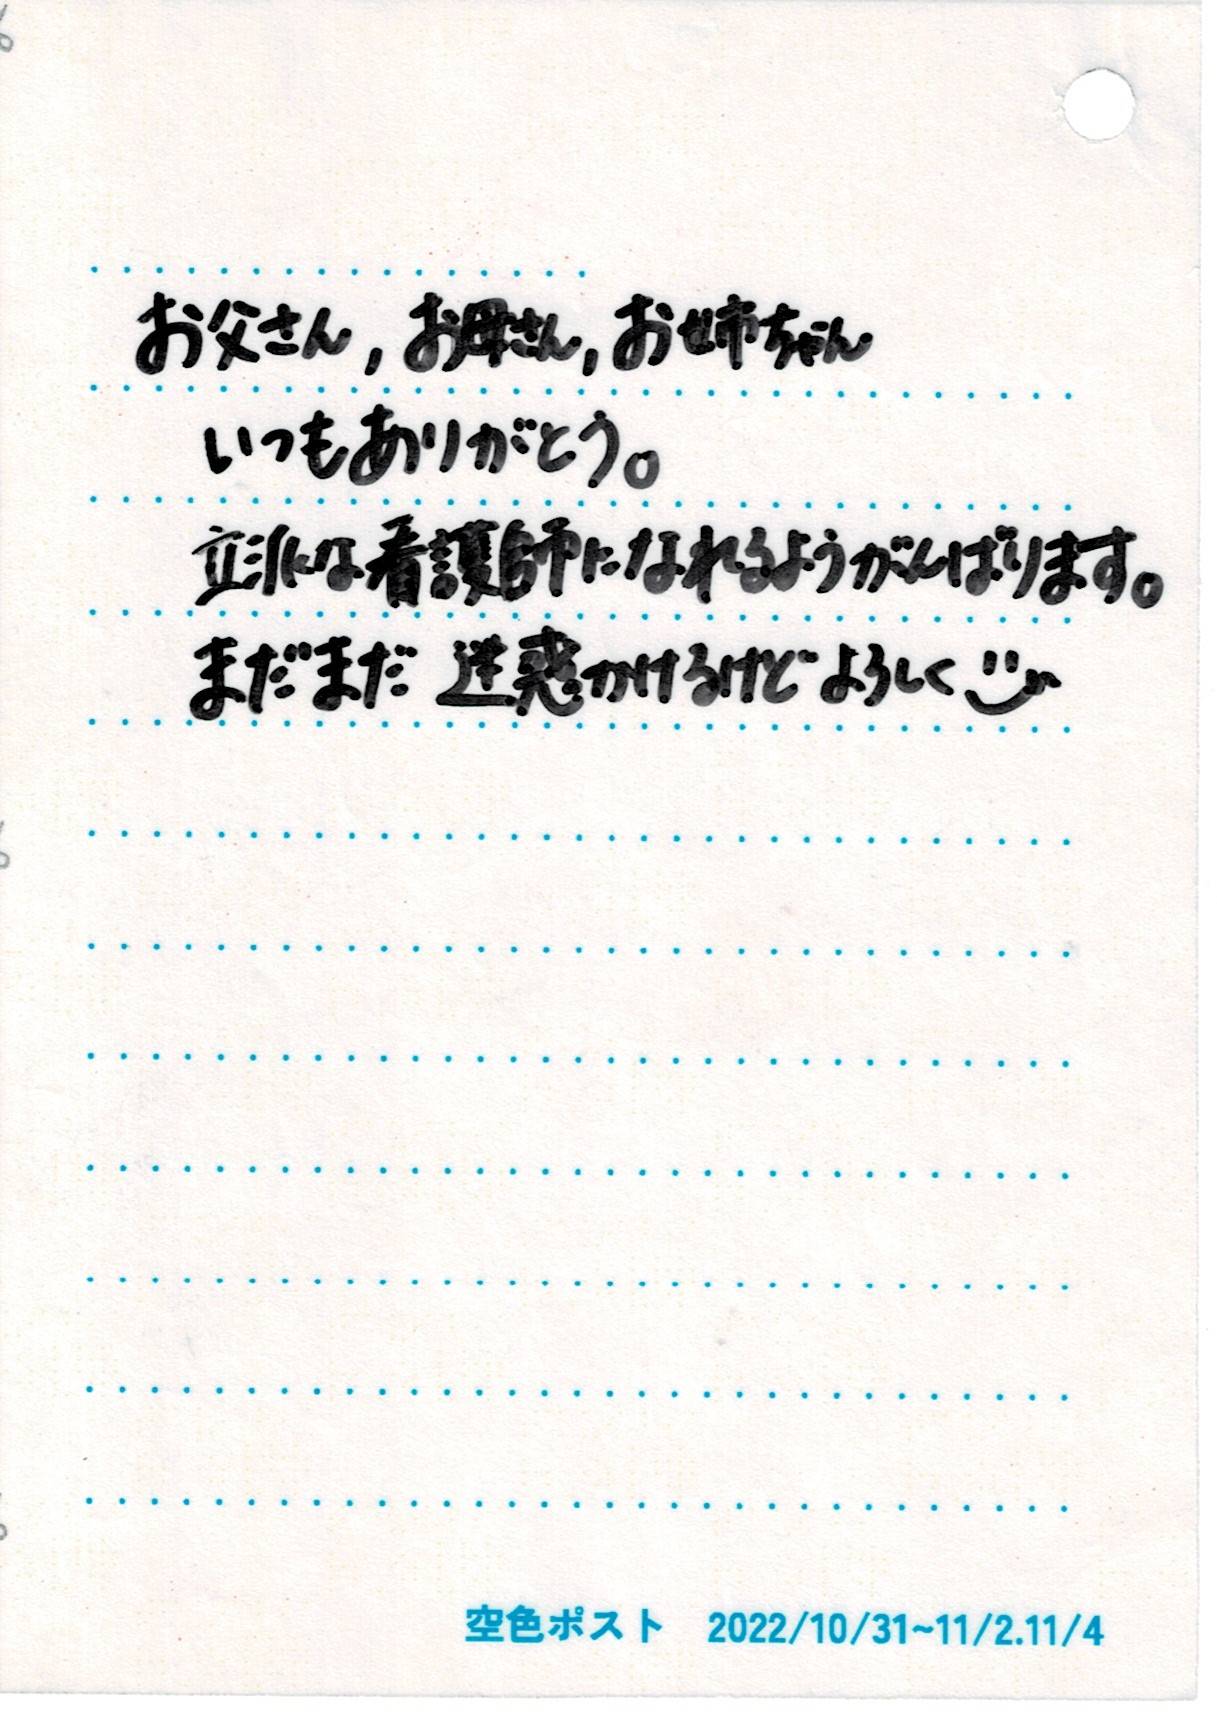 お父さん,お母さん,お姉ちゃん
いつもありがとう。
立派な看護師になれるようがんばります。
まだまだ 迷惑かけるけど よろしく
空色ポスト 2022/10/31~11/2.11/4